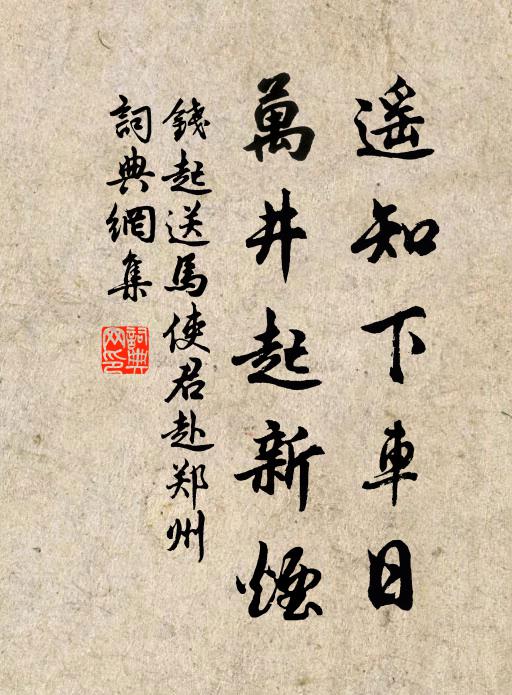 遥知下車日
萬井起新煙
錢起送馬使君赴郑州
詞典網集
詞典網印